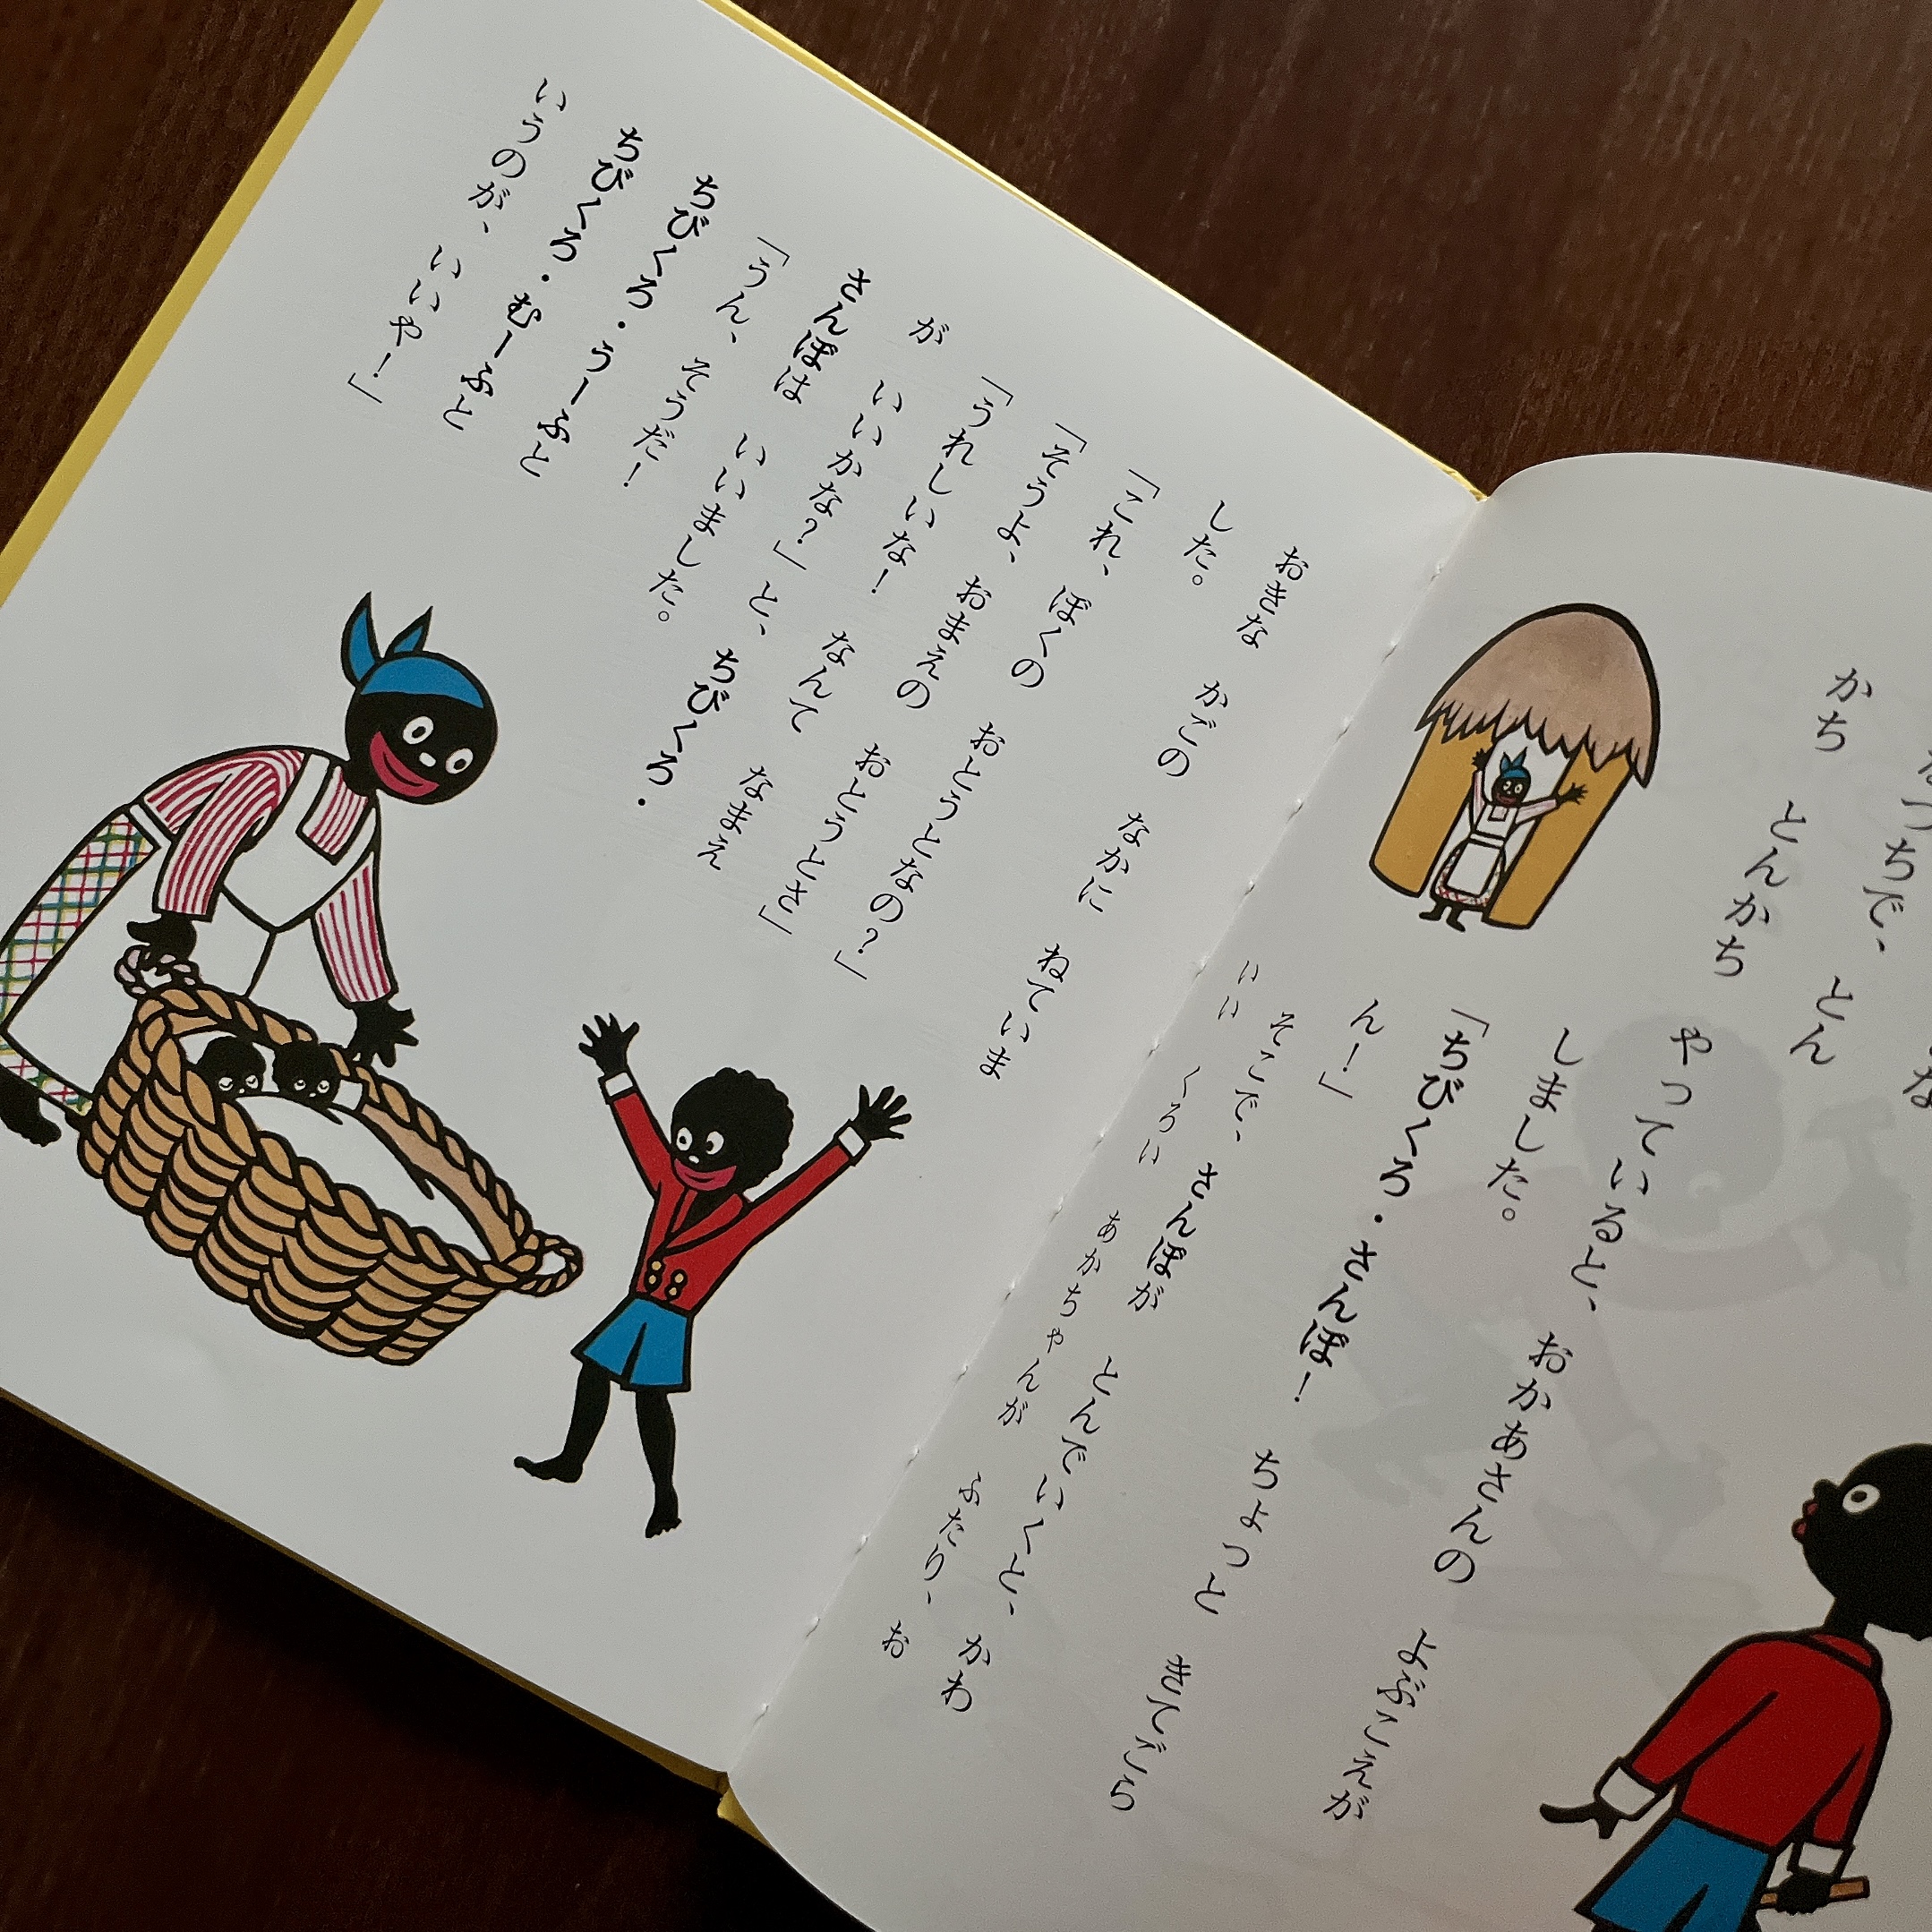 なづちで、 とん
かち とんかち やっていると、 おかあさんの よぶこえが
しました。
「ちびくろ・さんぼ! ちょっと きてごら
ん!」
そこで、 さんぼが とんでいくと、 かわ
いい くろい あかちゃんが ふたり、 お
おきな かごの なかに ねていま
した。
「これ、 ぼくの おとうとなの?」
「そうよ、 おまえの おとうとさ」
「うれしいな! なんて なまえ
が いいかな?」と、 ちびくろ・
さんぼは いいました。
「うん、 そうだ!
ちびくろ・うーふと
ちびくろ・むーふと
いうのが、 いいや!」